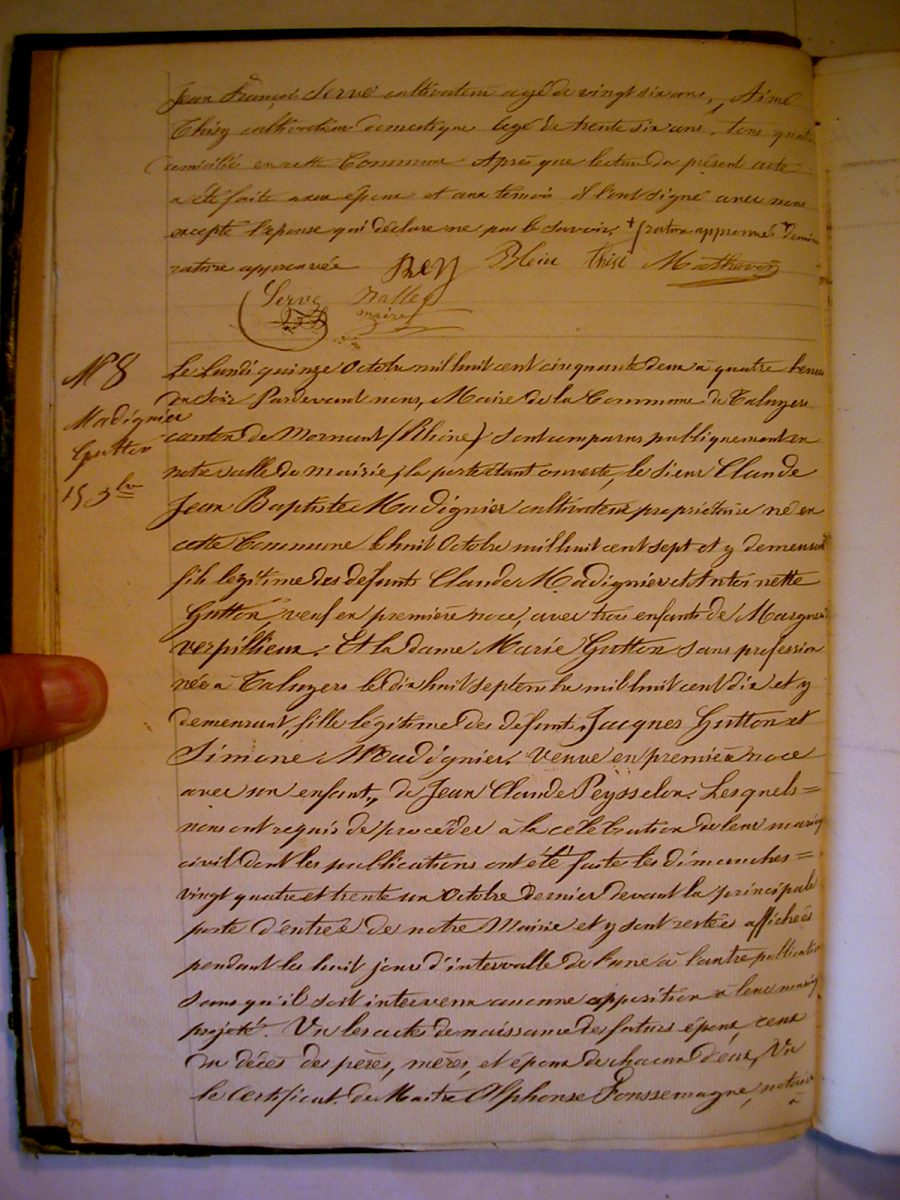 Jean François Serve cultivateur agé de vingt six ans, Aimé
Thisy cultivateur domestique agé de trente six ans tous quatre
domicilié en cette Commune Après que lecture du présent acte
a été faite aux époux et aux temoin il l'ont signé avec nous
excepté l'épouse qui déclare ne pas le Savoir, + rature approuvée
rature approuvée Rey Blein Thisi Mathevon
Serve Nallet
maire
N° 8
Madignier
Gutton
15 9bre
Le Lundi quinze Octobre mil huit cent cinquante deux à quatre heures
du Soir Pardevant nous, Maire de la Commune de Taluyers
canton de Mornant (Rhône) sont comparus publiquement en
notre salle de mairie, la porte étant ouverte, le sieur Claude
Jean Baptiste Madignier cultivateur propriétaire né en
cette Commune le huit Octobre mil huit cent sept et y demeurant
fils legitime des défunts Claude Madignier et Antoinette
Gutton veuf en première noce, avec trois enfants de
verpillieux. Et la dame Marie Gutton sans profession
née à Taluyers le dix huit septembre mil huit cent dix et y
demeurant, fille légitime des défunts Jacques Gutton et
Simone Madignier. Veuve en première noce
avec un enfant, de Jean Claude Peysselon. Lesquels=
nous ont requis de procéder à la célébration de leur mariage
civil dont les publications ont été faite les dimanches=
vingt quatre et trente un Octobre dernier devant la principale
porte d'entrée de notre Mairie et y sont restées affichées
pendant les huit jours d'intervalle de l'une à l'autre publication
sans qu'il soit intervenu aucune opposition à leur mariage
projeté. Vu les actes de naissance des futurs époux, ceux
du décès des pères, mères, et époux de chacun d'eux, Vu
le Certificat de Maitre Alphonse Fonssemagne, notaire
à